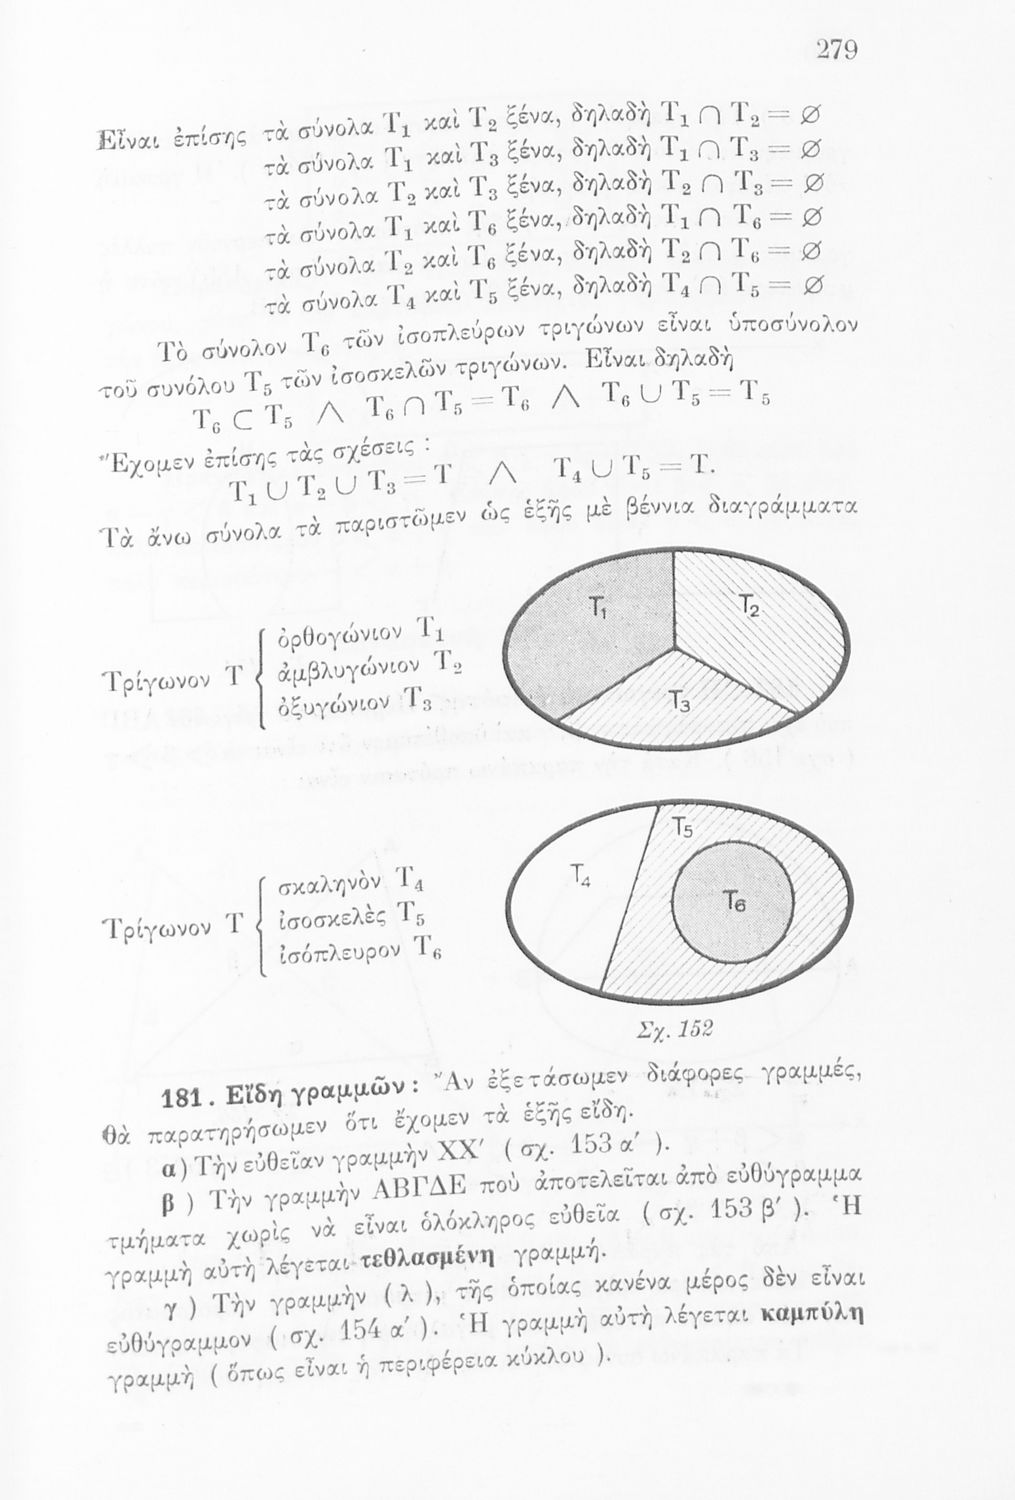 279
Εἶναι ἐπίσης τὰ σύνολα Τ₁ καὶ Τ₂ ξένα, δηλαδὴ Τ₁ ∩ Τ₂ = ∅
τὰ σύνολα Τ₁ καὶ Τ₃ ξένα, δηλαδὴ Τ₁ ∩ Τ₃ = ∅
τὰ σύνολα Τ₂ καὶ Τ₃ ξένα, δηλαδὴ Τ₂ ∩ Τ₃ = ∅
τὰ σύνολα Τ₁ καὶ Τ₆ ξένα, δηλαδὴ Τ₁ ∩ Τ₆ = ∅
τὰ σύνολα Τ₂ καὶ Τ₆ ξένα, δηλαδὴ Τ₂ ∩ Τ₆ = ∅
τὰ σύνολα Τ₄ καὶ Τ₅ ξένα, δηλαδὴ Τ₄ ∩ Τ₅ = ∅
Τὸ σύνολον Τ₆ τῶν ἰσοπλεύρων τριγώνων εἶναι ὑποσύνολον
τοῦ συνόλου Τ₅ τῶν ἰσοσκελῶν τριγώνων. Εἶναι δηλαδὴ
Τ₆ ⊂ Τ₅ ∧ Τ₆ ∩ Τ₅ = Τ₆ ∧ Τ₆ ∪ Τ₅ = Τ₅
Ἔχομεν ἐπίσης τὰς σχέσεις :
Τ₁ ∪ Τ₂ ∪ Τ₃ = Τ ∧ Τ₄ ∪ Τ₅ = Τ.
Τὰ ἄνω σύνολα τὰ παριστῶμεν ὡς ἑξῆς μὲ βέννια διαγράμματα
Τρίγωνον Τ
ὀρθογώνιον Τ₁
ἀμβλυγώνιον Τ₂
ὀξυγώνιον Τ₃
Τ₁
Τ₂
Τ₃
Τρίγωνον Τ
σκαληνὸν Τ₄
ἰσοσκελὲς Τ₅
ἰσόπλευρον Τ₆
Τ₄
Τ₅
Τ₆
Σχ. 152
181. Εἴδη γραμμῶν : Ἂν ἐξετάσωμεν διάφορες γραμμές,
θὰ παρατηρήσωμεν ὅτι ἔχομεν τὰ ἑξῆς εἴδη.
α) Τὴν εὐθεῖαν γραμμὴν ΧΧ′ ( σχ. 153 α′ ).
β ) Τὴν γραμμὴν ΑΒΓΔΕ ποὺ ἀποτελεῖται ἀπὸ εὐθύγραμμα
τμήματα χωρὶς νὰ εἶναι ὁλόκληρος εὐθεῖα ( σχ. 153 β′ ). Ἡ
γραμμὴ αὐτὴ λέγεται τεθλασμένη γραμμή.
γ ) Τὴν γραμμὴν ( λ ), τῆς ὁποίας κανένα μέρος δὲν εἶναι
εὐθύγραμμον ( σχ. 154 α′ ). Ἡ γραμμὴ αὐτὴ λέγεται καμπύλη
γραμμὴ ( ὅπως εἶναι ἡ περιφέρεια κύκλου ).